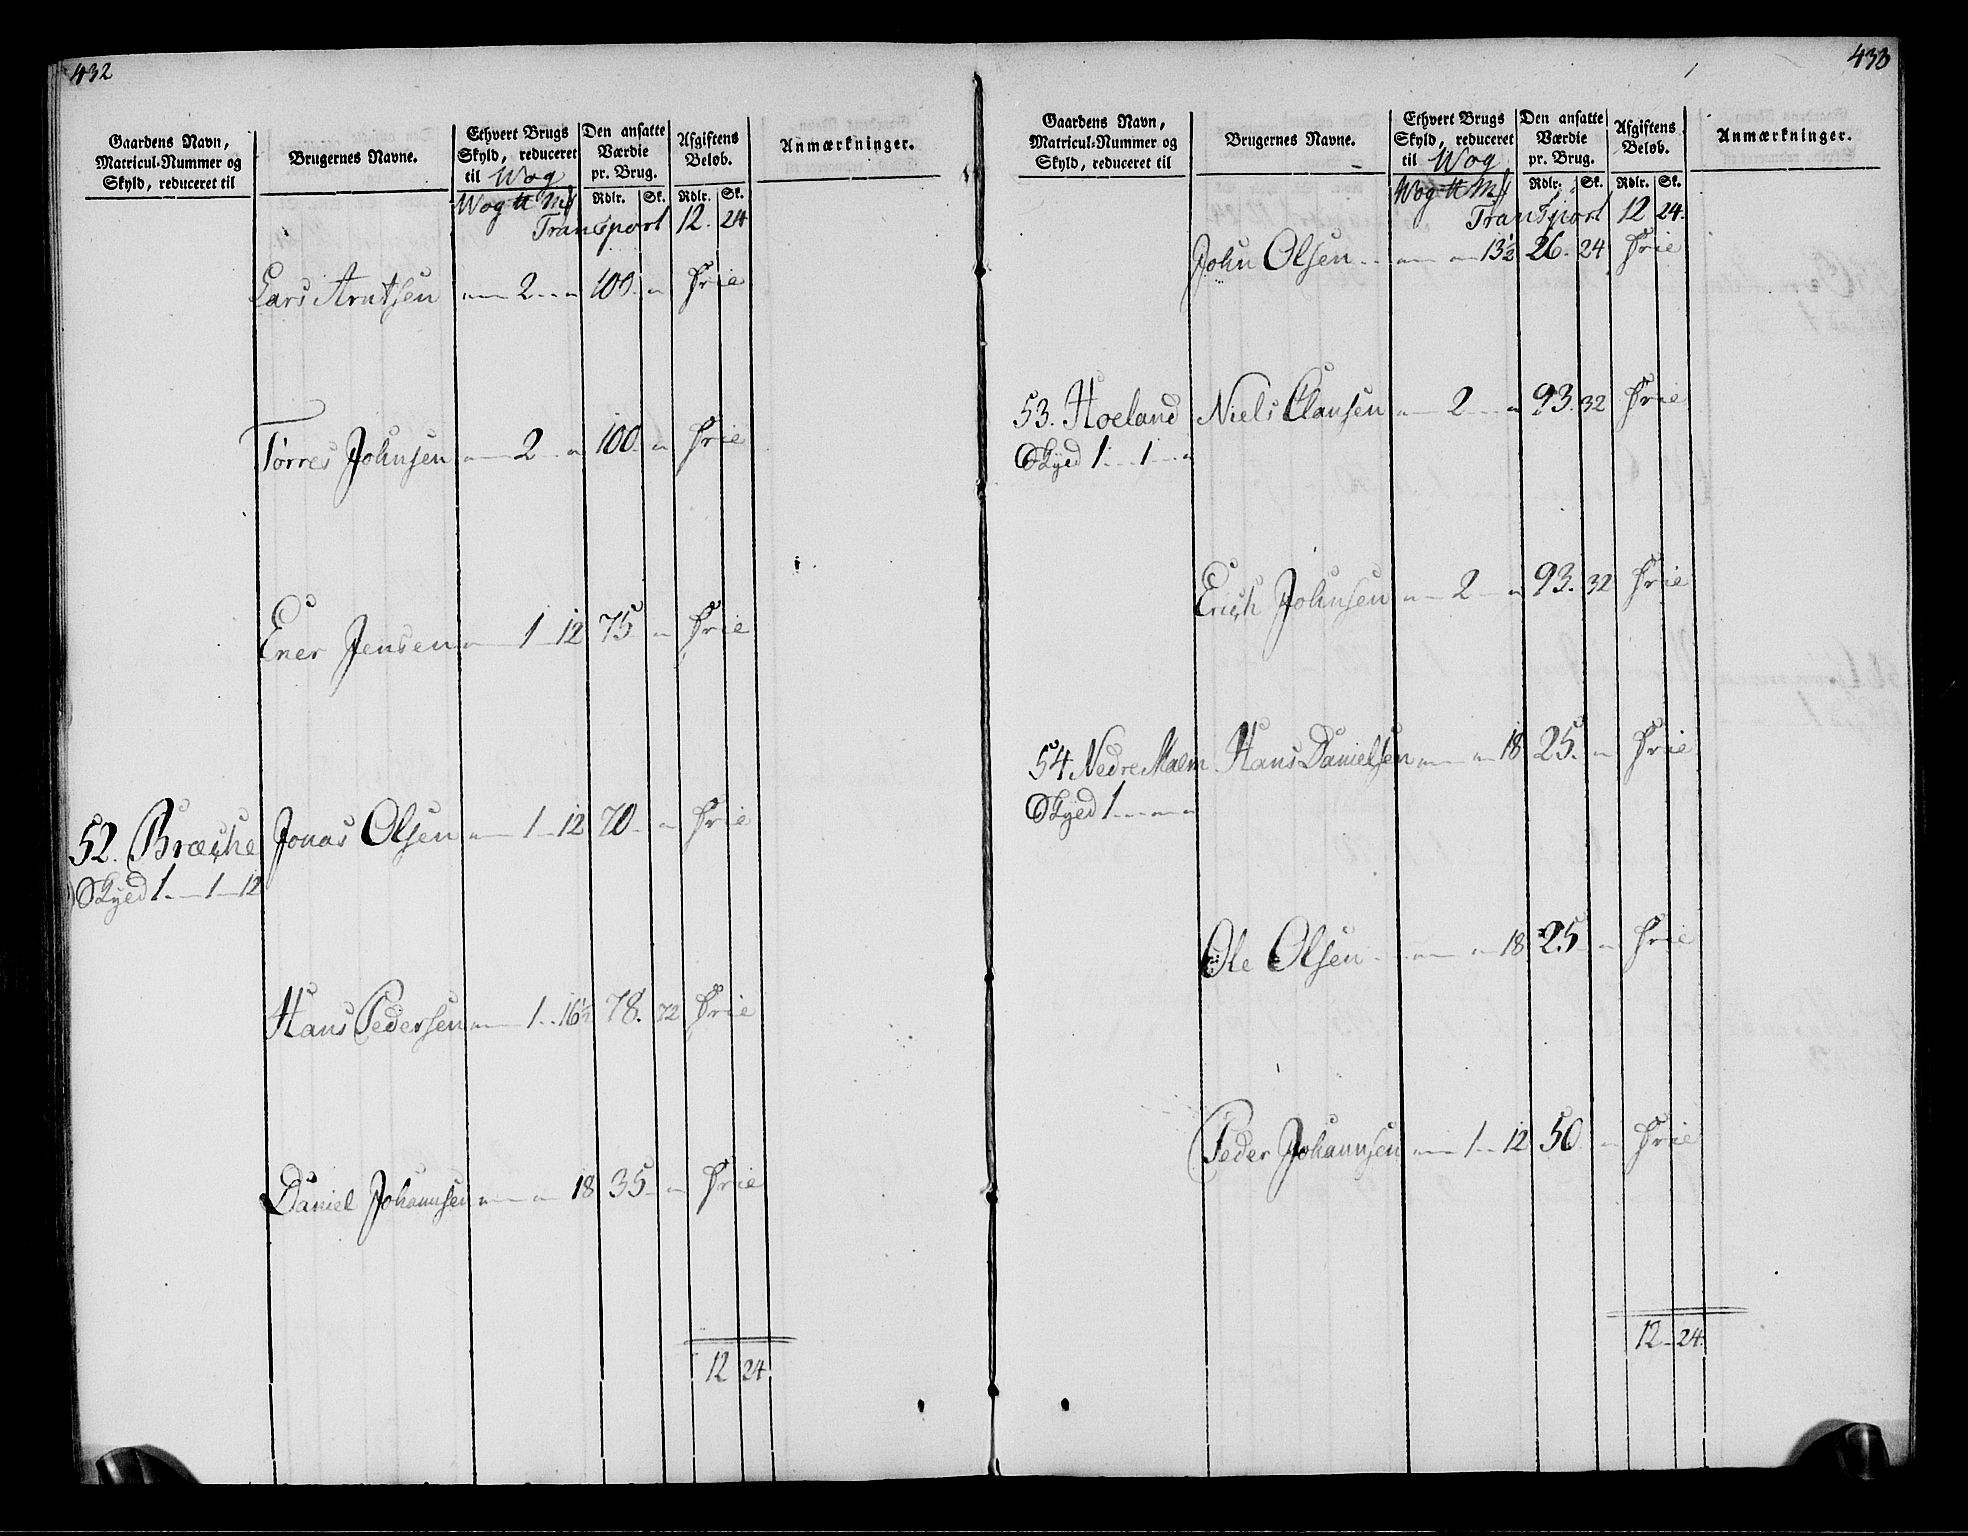 432
Gaardens Navn, Matricul-Nummer og Skyld, reduceret til | Brugernes Navne. | Ethvert Brugs Skyld, reduceret til Wog | Den ansatte Værdie pr. Brug. | Afgiftens Beløb. | Anmærkninger.
Wog ℔ Mk | Rdlr. | Sk. | Rdlr. | Sk.
Transport 12. 24
Lars Arntsen " 2 " 100. " Frie
Torres Johnsen " 2 " 100. " Frie
Ener Jensen " 1 12 75 " Frie
52. Bræche Jonas Olsen " 1 12 70. " Frie
Skyld 1 1 12
Hans Pedersen " 1 16½ 78. 72 Frie
Daniel Johannsen " " 18 35 " Frie
12 24
433
Gaardens Navn, Matricul-Nummer og Skyld, reduceret til | Brugernes Navne. | Ethvert Brugs Skyld, reduceret til Wog | Den ansatte Værdie pr. Brug. | Afgiftens Beløb. | Anmærkninger.
Wog ℔ Mk | Rdlr. | Sk. | Rdlr. | Sk.
Transport 12 24.
John Olsen " " 13½ 26. 24 Frie
53. Hoeland Niels Clausen " 2 " 93. 32 Frie
Skyld 1 1 "
Erich Johnsen " 2 " 93. 32 Frie
54 Nedre Malm Hans Danielsen " " 18 25. " Frie
Skyld 1 " "
Ole Olsen " " 18 25 " Frie
Peder Johannsen " 1 12 50 " Frie
12 24.